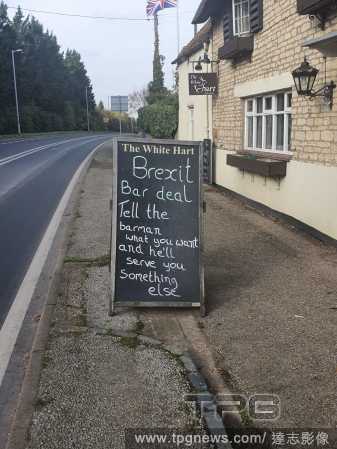 The White Hart
The White Hart
Brexit
Bar deal
Tell the
barman
what you want
and he'll
serve you
something
else
TPG
www.tpgnews.com/達志影像